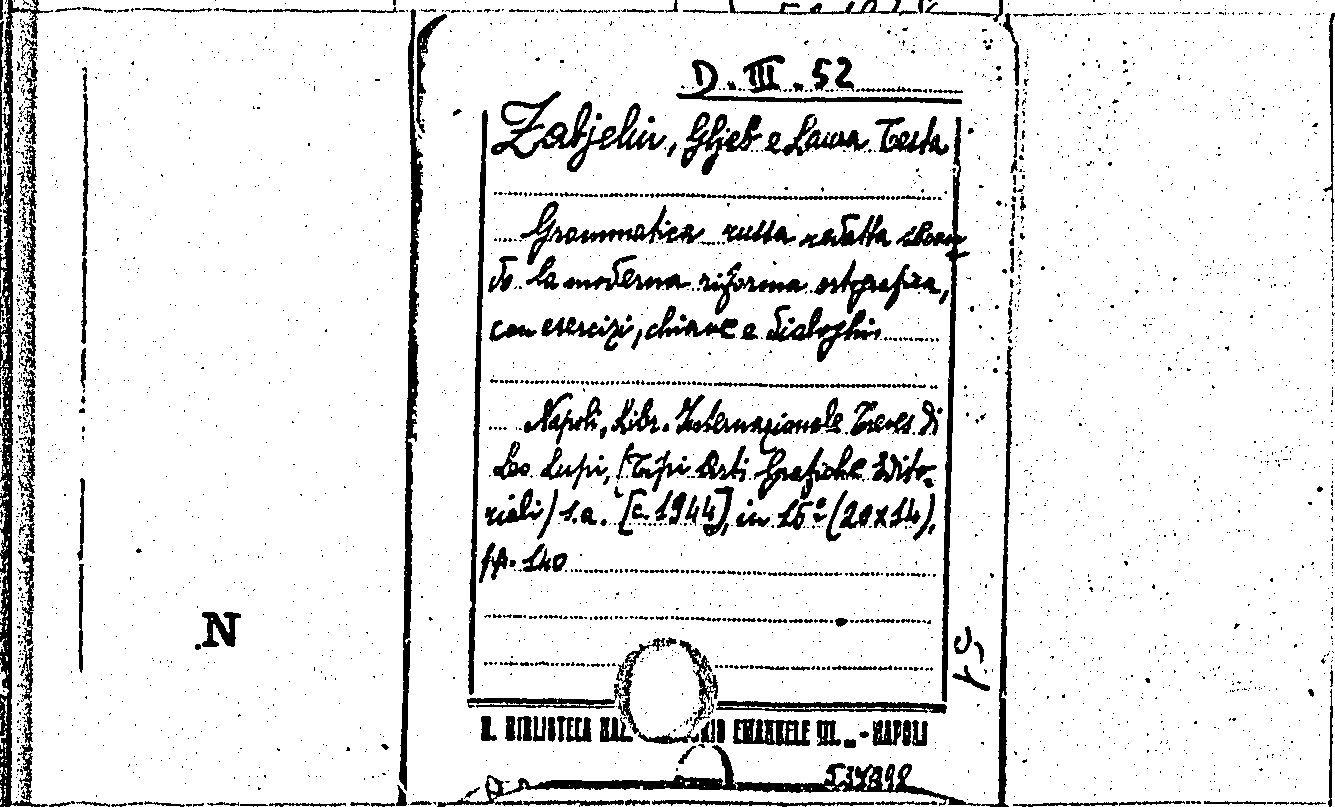 D. III. 52
Zabjelin, Gljeb e Laura Testa
Grammatica russa redatta secon
do la moderna riforma ortografica,
con esercizi, chiave e dialoghi.
Napoli, Libr. Internazionale Treves di
Leo Lupi, (Tipi Arti Grafiche Edito-
riali) s.a. [c. 1944], in 16º (20x14),
pp. 140
N
R. BIBLIOTECA NAZ. EMANUELE III. - NAPOLI